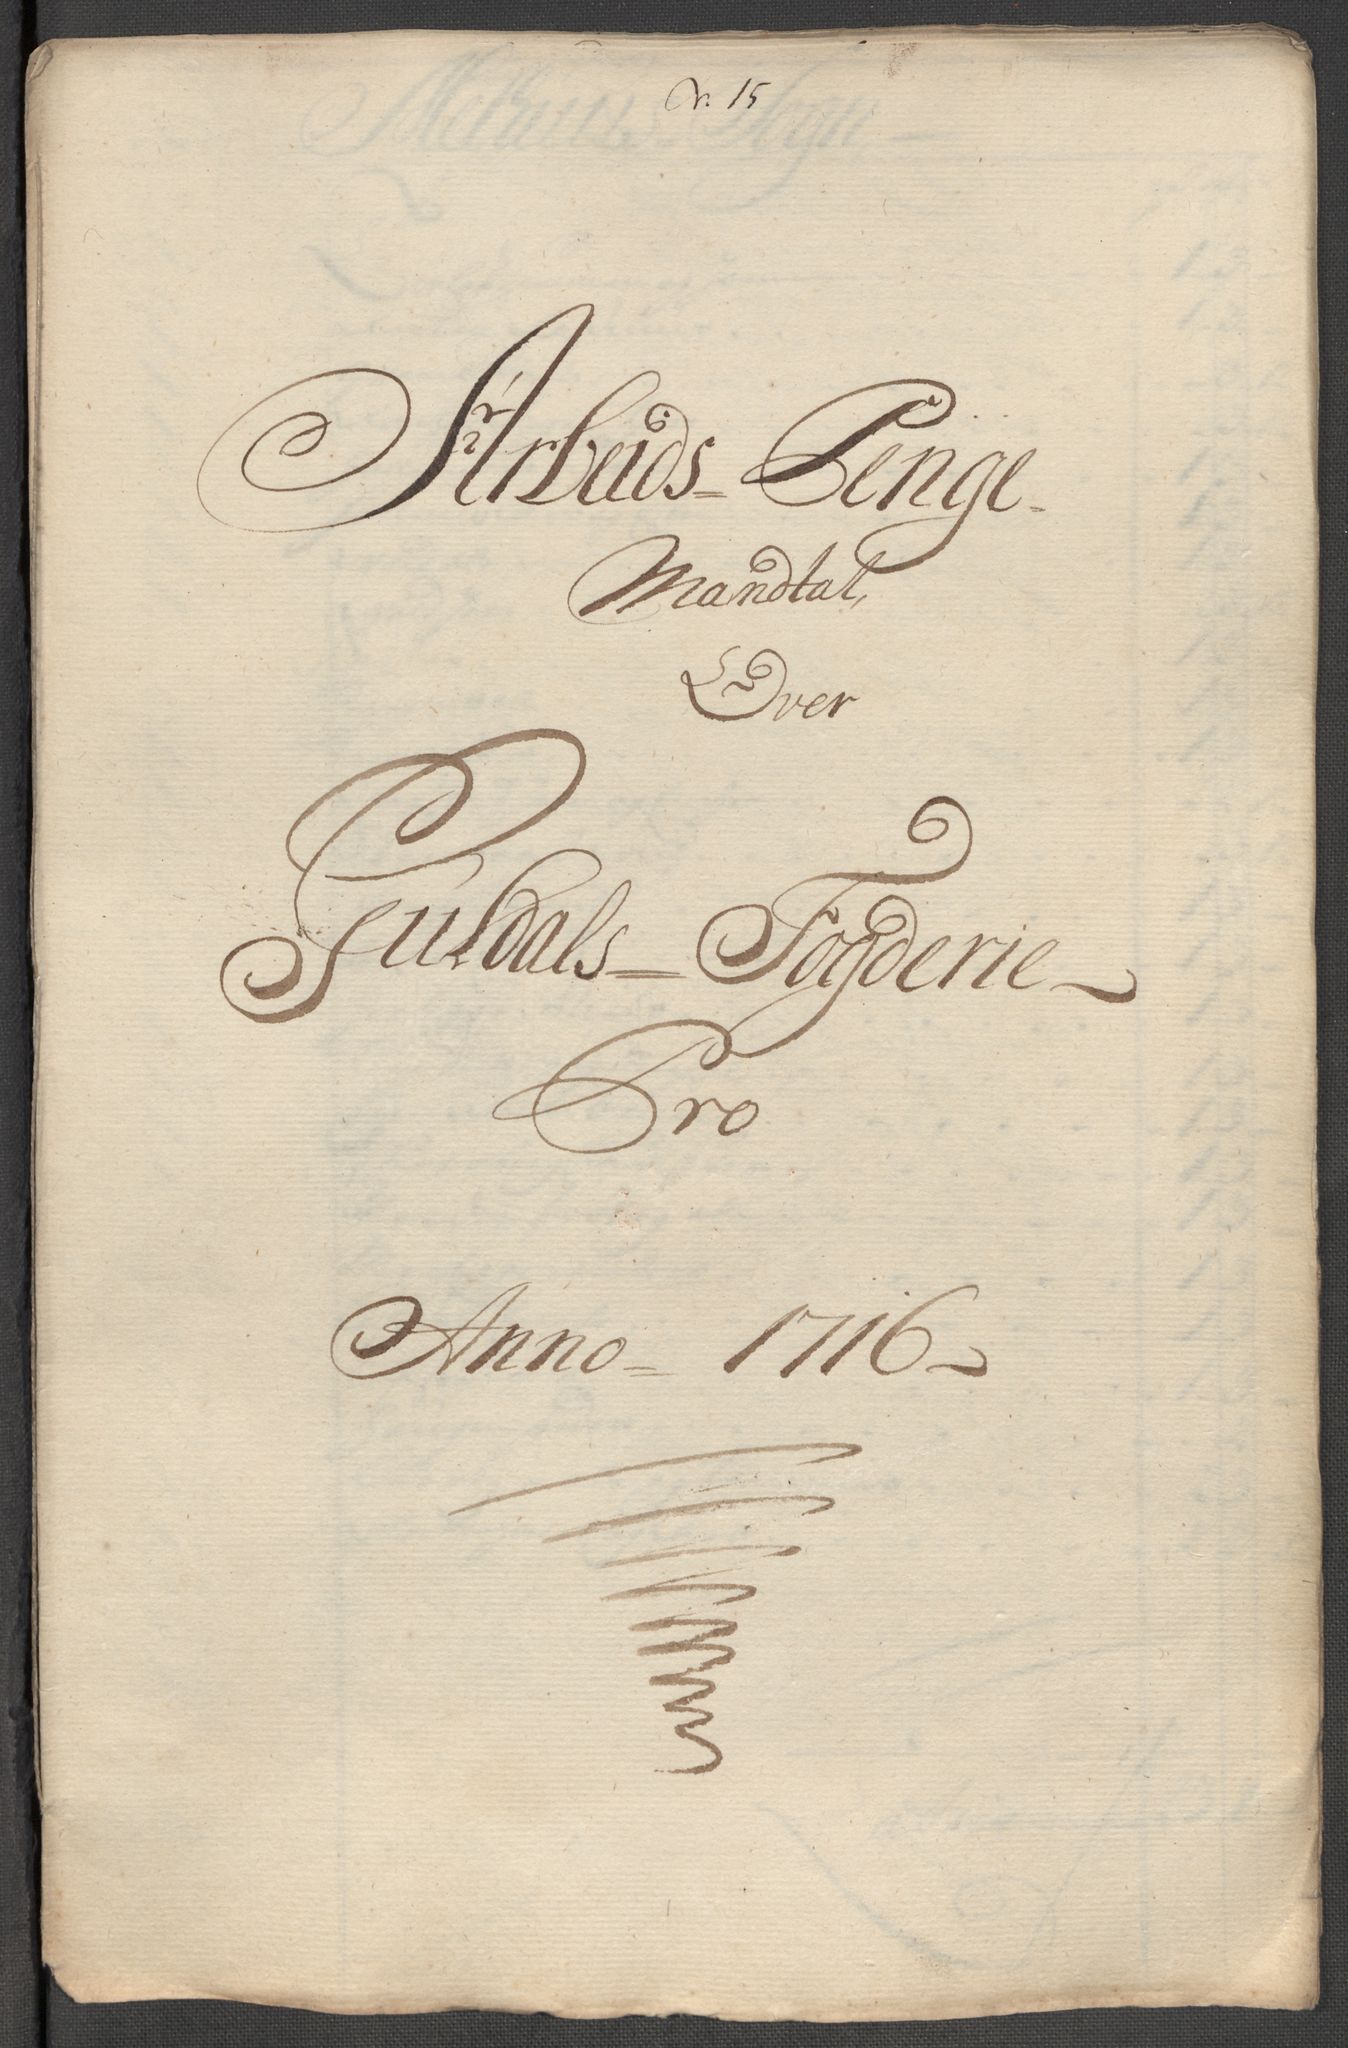 N. 15
Arbeids- Penge-
Mandtal,
Over
Guldals- Fogderie
Pro
Anno- 1716